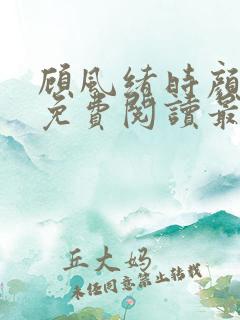 顾风绪时颜
免費閱讀最
丘大妈
未经同意禁止转载